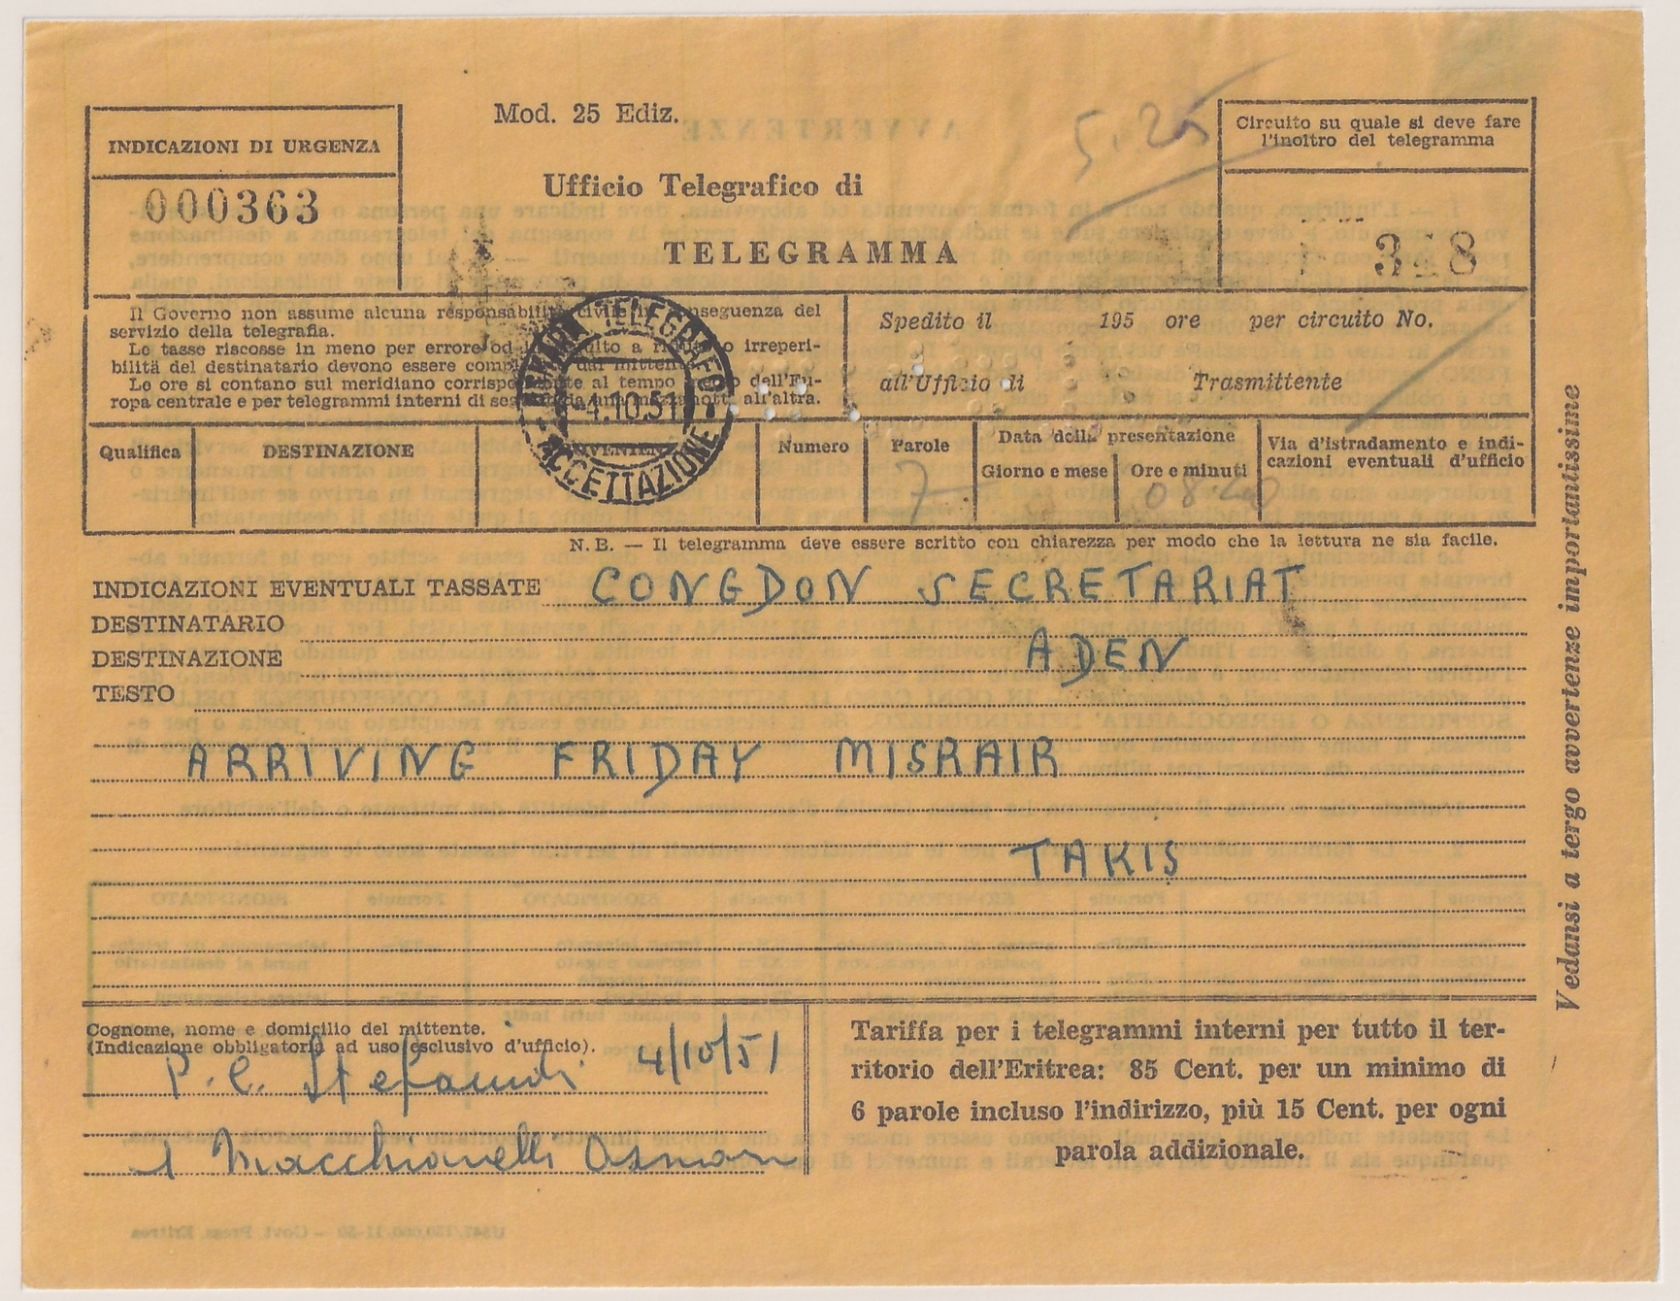 Mod. 25 Ediz.
5.25
INDICAZIONI DI URGENZA
000363
Ufficio Telegrafico di
TELEGRAMMA
Circuito su quale si deve fare
l'inoltro del telegramma
Il Governo non assume alcuna responsabilità civile in conseguenza del
servizio della telegrafia.
Le tasse riscosse in meno per errore od in seguito a rifiuto o irreperi-
bilità del destinatario devono essere completate dal mittente.
Le ore si contano sul meridiano corrispondente al tempo medio dell'Eu-
ropa centrale e per telegrammi interni di seguito da una mezzanotte all'altra.
TELEGRAFO
4.10.51
ACCETTAZIONE
Spedito il 195 ore per circuito No.
all'Ufficio di Trasmittente
Qualifica
DESTINAZIONE
PROVENIENZA
Numero
Parole
7
Data della presentazione
Giorno e mese
Ore e minuti
Via d'istradamento e indi-
cazioni eventuali d'ufficio
N. B. — Il telegramma deve essere scritto con chiarezza per modo che la lettura ne sia facile.
INDICAZIONI EVENTUALI TASSATE CONGDON SECRETARIAT
DESTINATARIO
DESTINAZIONE ADEN
TESTO
ARRIVING FRIDAY MISRAIR
TAKIS
Cognome, nome e domicilio del mittente.
(Indicazione obbligatoria ad uso esclusivo d'ufficio).
4/10/51
Macchionelli Osman
Tariffa per i telegrammi interni per tutto il ter-
ritorio dell'Eritrea: 85 Cent. per un minimo di
6 parole incluso l'indirizzo, più 15 Cent. per ogni
parola addizionale.
Vedansi a tergo avvertenze importantissime